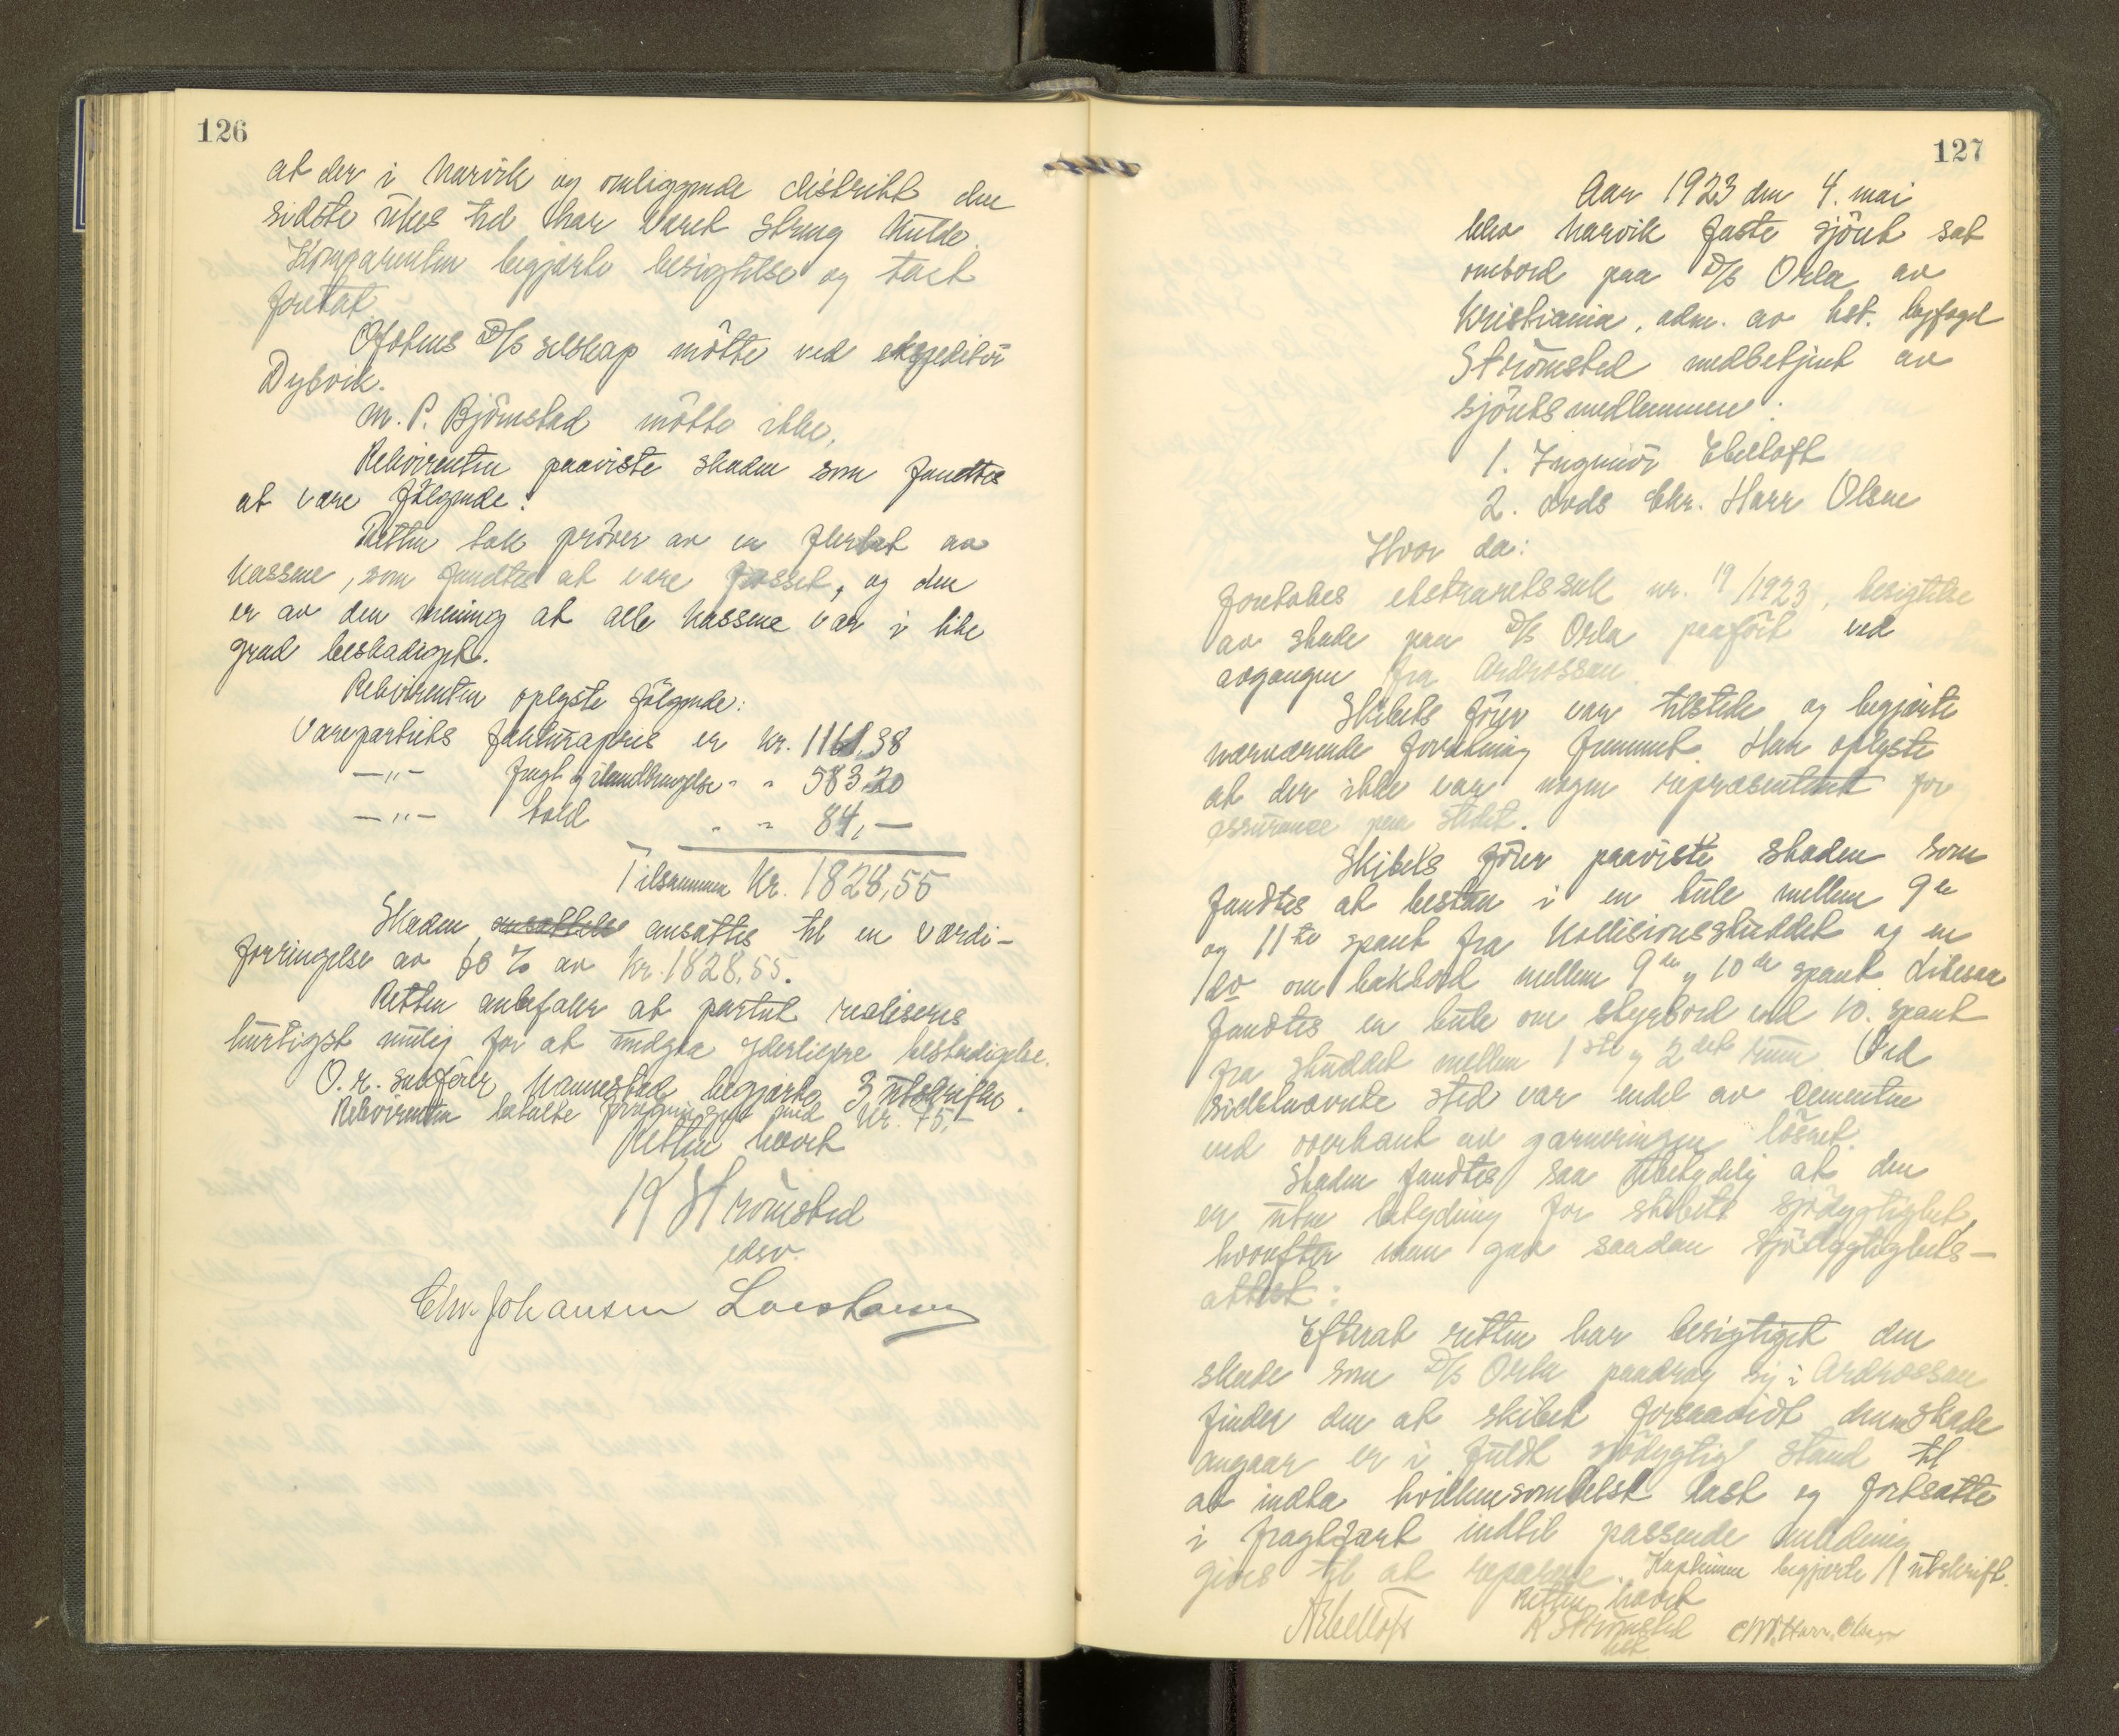 126
at der i Narvik og omliggende distrikt den
sidste ukes tid har været streng kulde.
Komparenten begjærte besigtelse og takst
foretat.
Ofotens D/S selskap mötte ved ekspeditör
Dybvik.
M. P. Björnstad mötte ikke.
Rekvirenten paaviste skaden som fandtes
at være fölgende:
Retten tok pröver av en flerhet av
kassene, som fandtes at være frosset, og den
er av den mening at alle kassene var i like
grad beskadiget.
Rekvirenten oplyste fölgende:
Varepartiets fakturapris er kr. 1161,38
—"— fragt og ilandbringelse " " 583.20
—"— told " " 84,—
Tilsammen Kr. 1828,55
Skaden ansattes til en værdi-
forringelse av 60 % av kr. 1828,55.
Retten anbefaler at partiet realiseres
hurtigst mulig for at undgaa yderligere beskadigelse.
O.r. sakförer Hannestad begjærte 3 utskrifter.
Rekvirenten betalte med kr. 75,-
Retten hævet
K Strömsted
edsv.
Chr. Johansen
127
Aar 1923 den 4. mai
blev Narvik faste sjöret sat
ombord paa D/S Orla av
Kristiania, adm. av kst. byfoged
Strömsted medbetjent av
sjöretsmedlemmene:
1. Ingeniör Ebeltoft
2. Lods Chr. Harr Olsen
Hvor da:
foretokes ekstraretssak nr. 19/1923, besigtelse
av skade paa D/S Orla paafört ved
avgangen fra Ardrossan.
Skibets förer var tilstede og begjærte
nærværende forretning fremmet. Han oplyste
at der ikke var nogen repræsentant for
assurance paa stedet.
Skibets förer paaviste skaden som
fandtes at bestaa i en bule mellem 9de
og 11te spant fra kollisionsskuddet og en
do om bakbord mellem 9de og 10de spant. Likesaa
fandtes en bule om styrbord ved 10. spant
fra skuddet mellem 1ste og 2det rum. Ved
sidstnævnte sted var endel av cementen
ved overkant av garneringen lösnet.
Skaden fandtes saa ubetydelig at den
er uten betydning for skibets sjödygtighet,
hvorefter man gav saadan sjödygtighets-
attest:
Efterat retten har besigtiget den
skade som D/S Orla paadrog sig i Ardrossan
finder den at skibet forsaavidt denne skade
angaar er i fuldt sjödygtig stand til
at indta hvilkensomhelst last og fortsætte
i fragtfart indtil passende anledning
gives til at reparere. Kapteinen begjærte 1 utskrift.
Retten hævet
AEbeltoft K Strömsted Chr. Harr. Olsen
kst